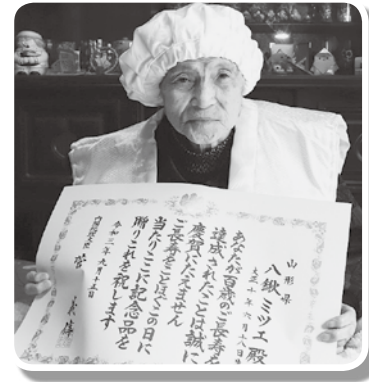 山形県
八鍬ミツエ殿
大正十年
あなたが百歳のご長寿を
達成されたことは誠に
慶賀にたえません
ご長寿をことほぐこの日に
当たりここに記念品を
贈りこれを祝します
令和三年九月十五日
内閣総理大臣 菅 義偉